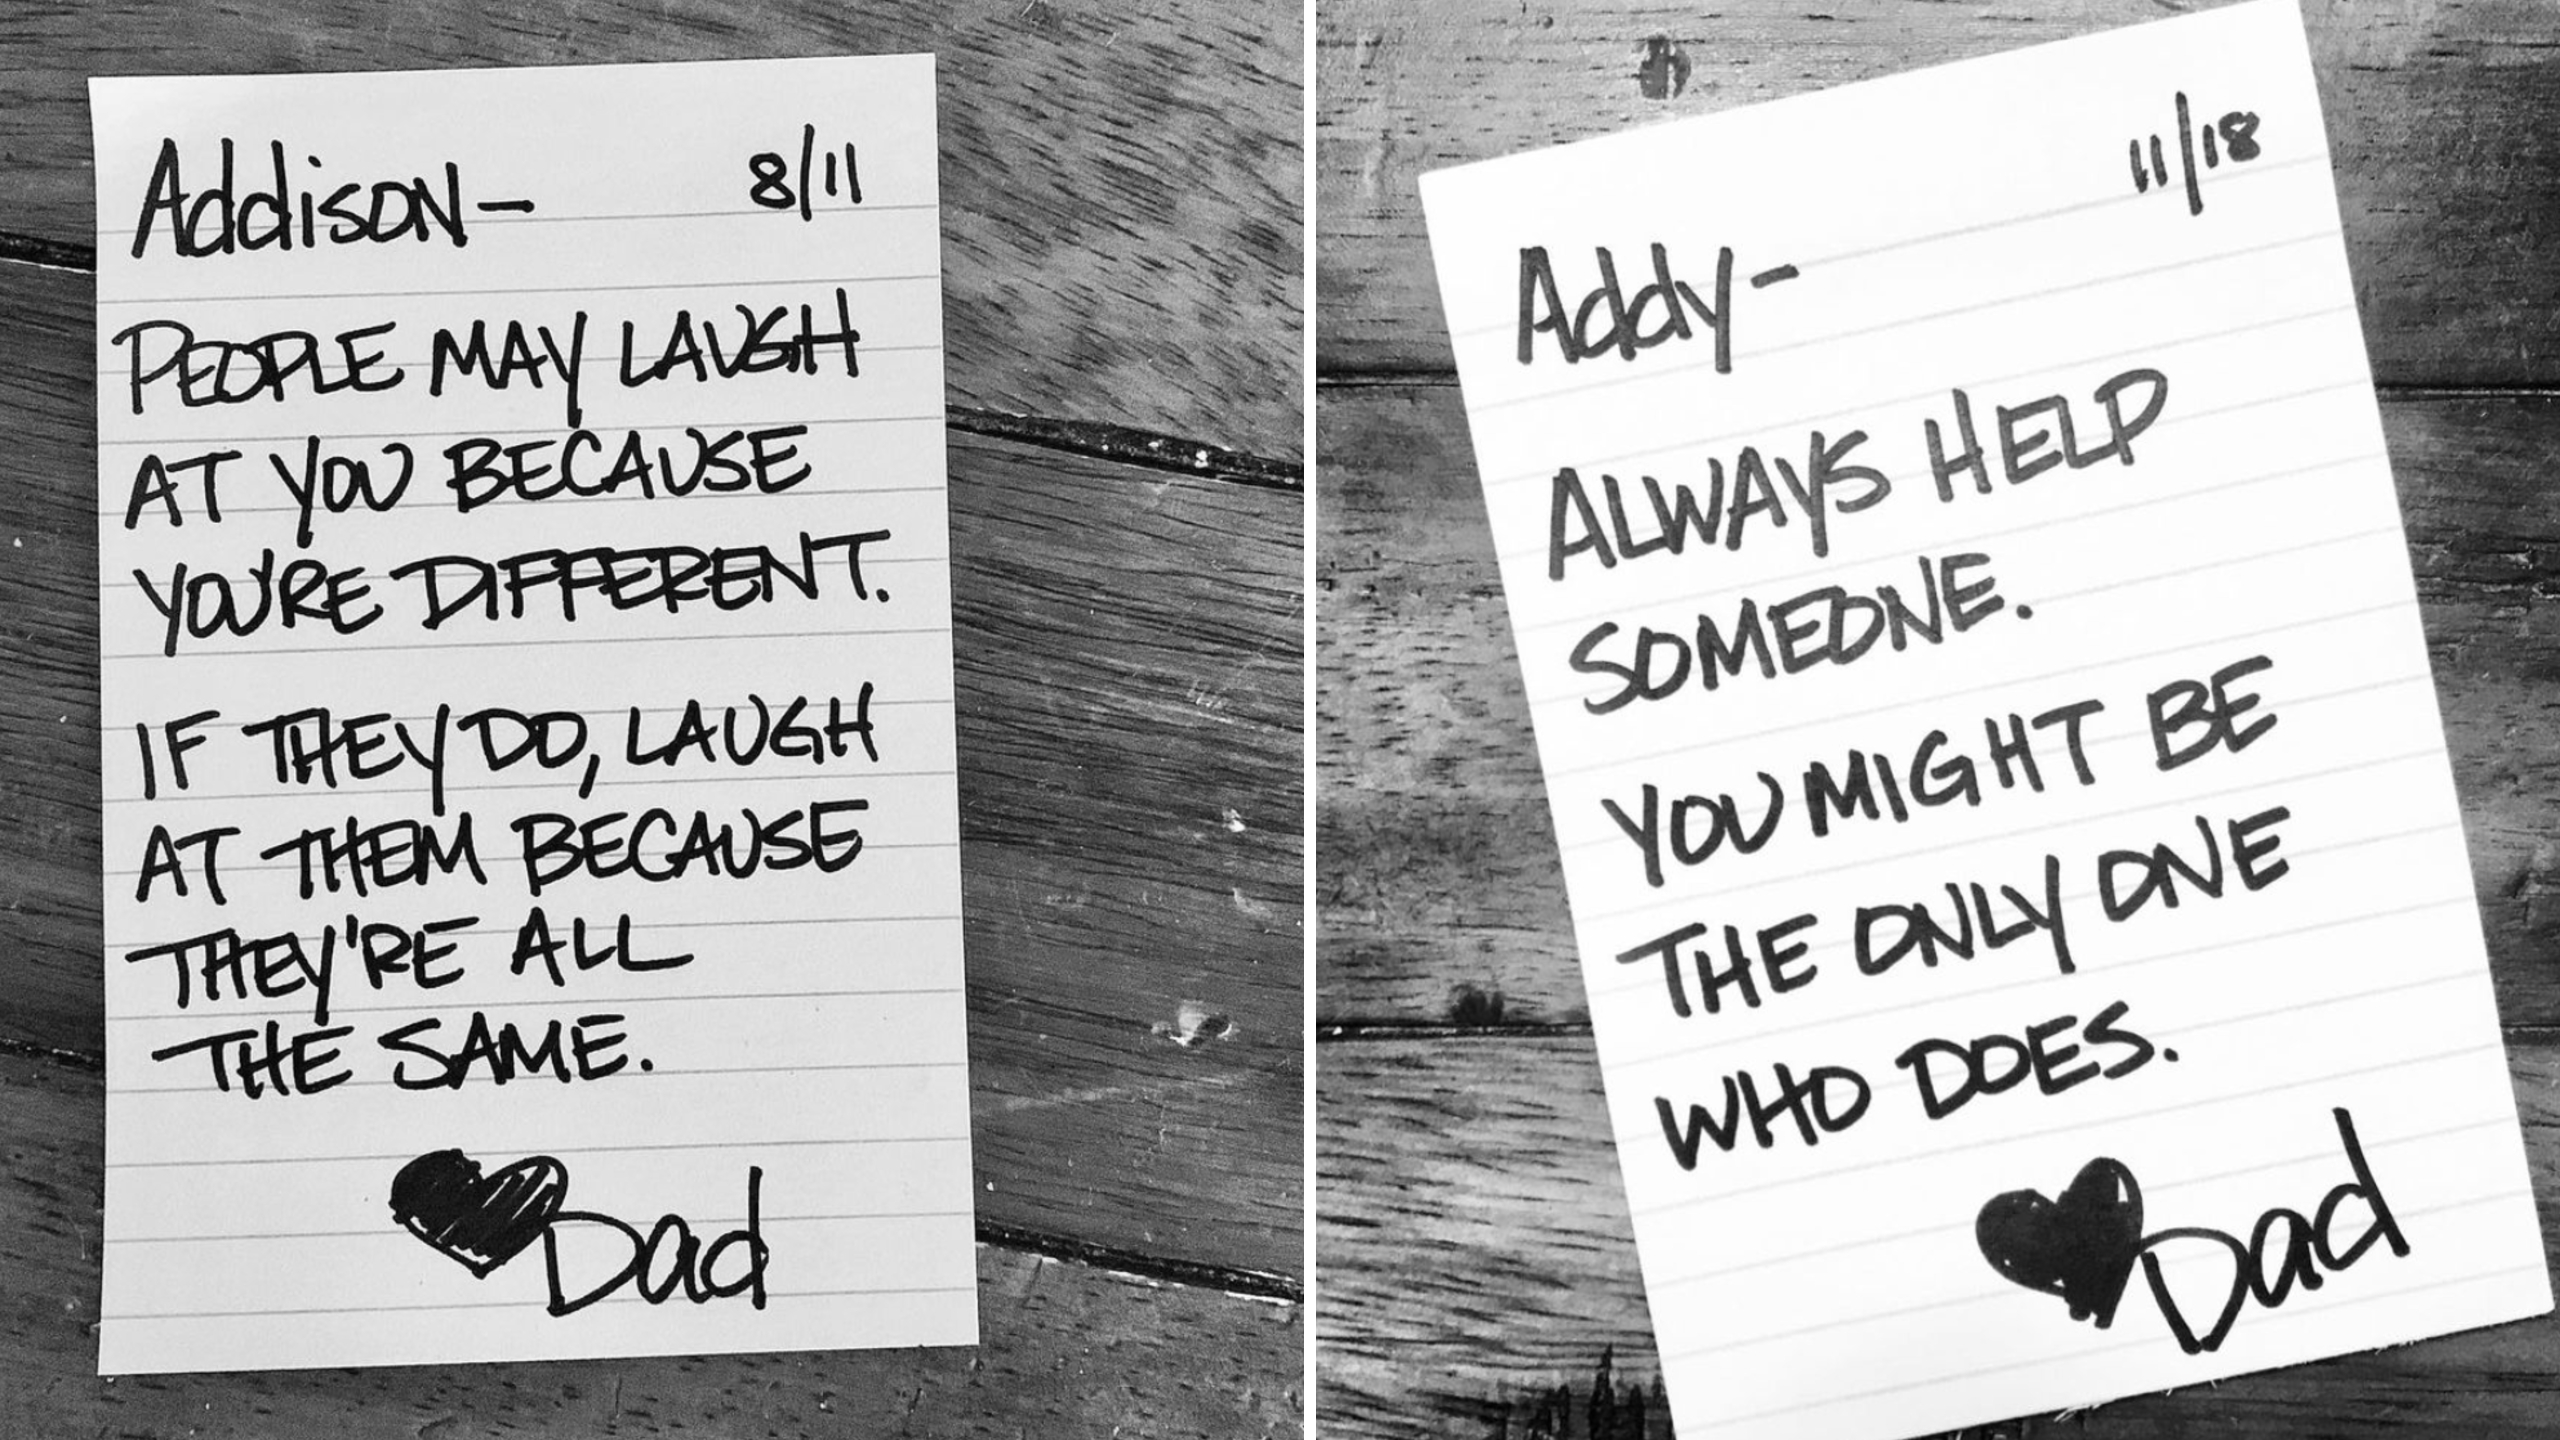 Addison- 8/11
PEOPLE MAY LAUGH
AT YOU BECAUSE
YOU'RE DIFFERENT.
IF THEY DO, LAUGH
AT THEM BECAUSE
THEY'RE ALL
THE SAME.
Dad
11/18
Addy-
ALWAYS HELP
SOMEONE.
YOU MIGHT BE
THE ONLY ONE
WHO DOES.
Dad